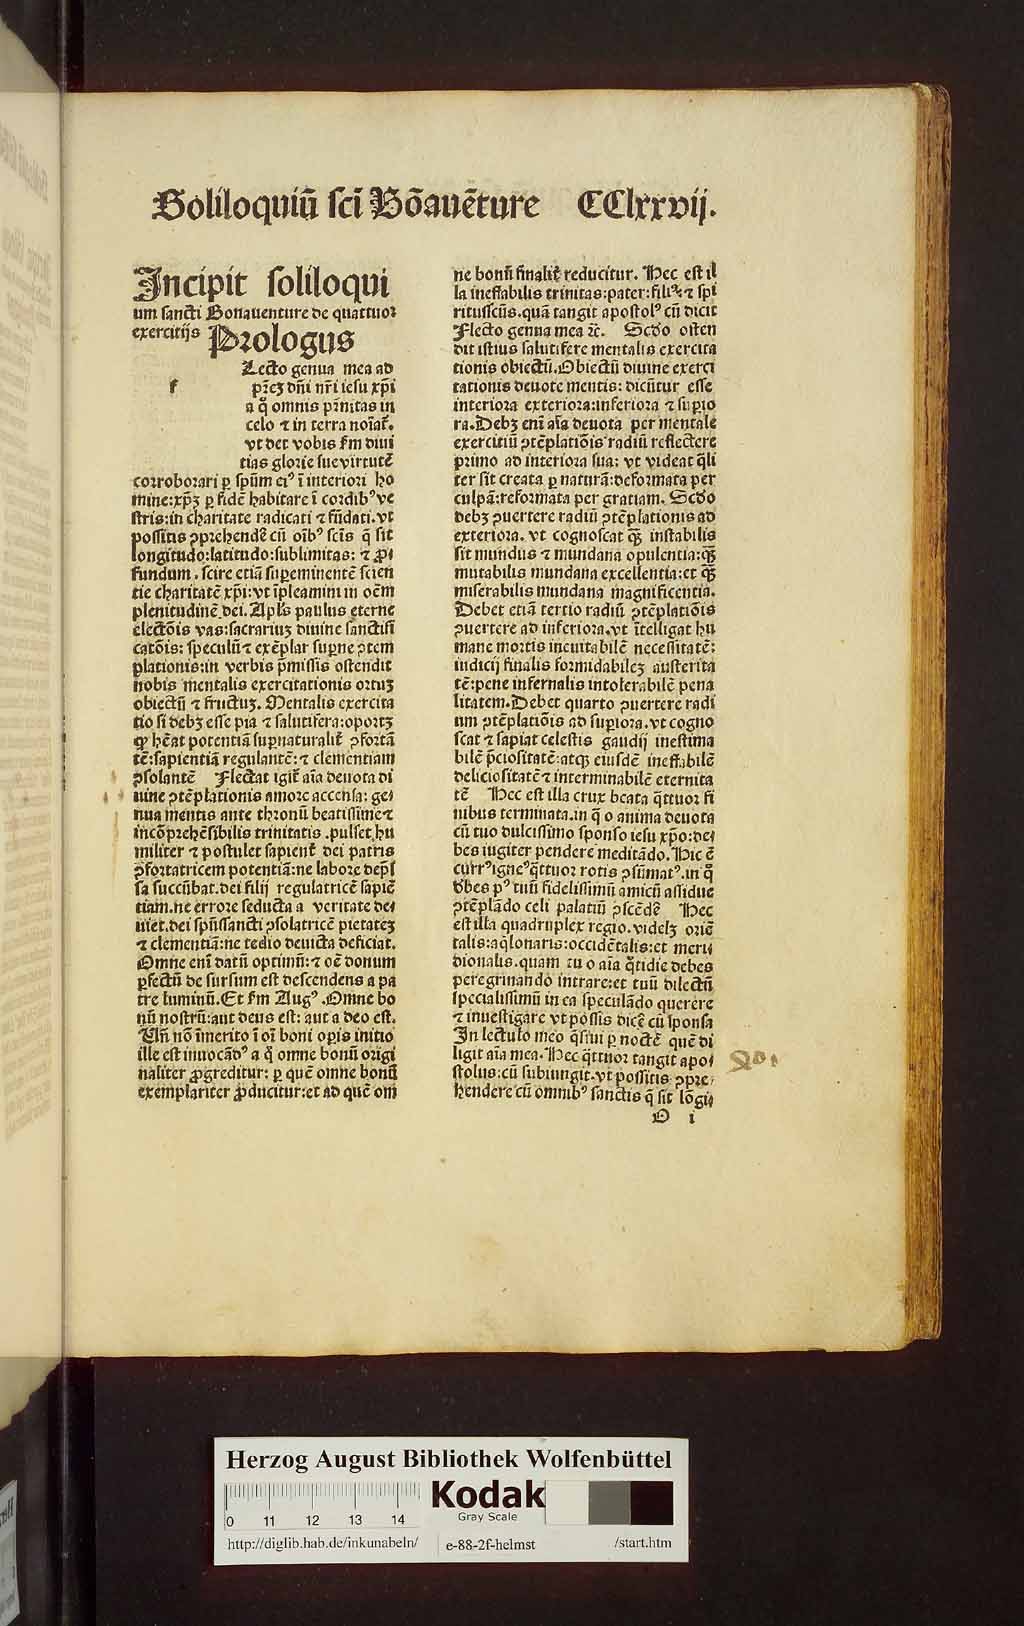 Soliloquiū scī Bōauēture CClxxvij.
Incipit soliloqui
um sancti Bonauenture de quattuor
exercitijs Prologus
f
Lecto genua mea ad
prēꝫ dn̄i nr̄i iesu xp̄i
a q̊ omnis pr̄nitas in
celo ⁊ in terra noīat̃.
vt det vobis ẜm diui
tias glorie sue virtutē
corroborari ꝑ spūm eiꝰ ī interiori ho
mine: xp̄ꝫ ꝑ fidē habitare ī cordibꝰ ve
stris: in charitate radicati ⁊ fūdati. vt
possitis ꝯprehendē cū oībꝰ scīs q̄ sit
longitudo: latitudo: sublimitas: ⁊ ꝓ⸗
fundum. scire etiā suꝑeminentē scien
tie charitatē xp̄i: vt īpleamini in oēm
plenitudinē dei. Apl̄s paulus eterne
electōis vas: sacrariuꝫ diuine sanctifi
catōis: speculū ⁊ exēplar suꝑne ꝯtem
plationis: in verbis p̄missis ostendit
nobis mentalis exercitationis ortuꝫ
obiectū ⁊ fructuꝫ. Mentalis exercita
tio si debꝫ esse pia ⁊ salutifera: oportꝫ
ꝙ hēat potentiā suꝑnaturalit̃ ꝯfortā
tē: sapientiā regulantē: ⁊ clementiam
ꝯsolantē Flectat igit̃ aīa deuota di
uine ꝯtēplationis amore accensa: ge⸗
nua mentis ante thronū beatissime ⁊
incōprehēsibilis trinitatis. pulset hu
militer ⁊ postulet sapient̃ dei patris
ꝯfortatricem potentiā: ne labore dep̄s
sa succūbat. dei filij regulatricē sapiē
tiam. ne errore seducta a veritate de⸗
uiet. dei sp̄ūssancti ꝯsolatricē pietateꝫ
⁊ clementiā: ne tedio deuicta deficiat.
Omne enī datū optimū: ⁊ oē donum
ꝑfectū de sursum est descendens a pa
tre luminū. Et ẜm Augꝰ. Omne bo
nū nostrū: aut deus est: aut a deo est.
Un̄ nō īmerito ī oī boni oꝑis initio
ille est inuocādꝰ a q̊ omne bonū origi
naliter ꝓgreditur: ꝑ quē omne bonū
exemplariter ꝓducitur: et ad quē om̄
ne bonū finalit̃ reducitur. Hec est il
la ineffabilis trinitas: pater: filiꝰ: ⁊ spi
ritusscūs. quā tangit apostolꝰ cū dicit
Flecto genua mea ⁊c̄. Scdo osten
dit istius salutifere mentalis exercita
tionis obiectū. Obiectū diuine exerci
tationis deuote mentis: dicūtur esse
interiora exteriora: inferiora ⁊ suꝑio
ra. Debꝫ enī aīa deuota per mentale
exercitiū ꝯtēplatiōis radiū reflectere
primo ad interiora sua: vt videat q̄li
ter sit creata ꝑ naturā: deformata per
culpā: reformata per gratiam. Scdo
debꝫ ꝯuertere radiū ꝯtēplationis ad
exteriora. vt cognoscat ꝙ̄ instabilis
sit mundus ⁊ mundana opulentia: ꝙ̄
mutabilis mundana excellentia: et ꝙ̄
miserabilis mundana magnificentia.
Debet etiā tertio radiū ꝯtēplatiōis
ꝯuertere ad inferiora. vt ītelligat hu
mane mortis ineuitabilē necessitatē:
iudicij finalis formidabileꝫ austerita
tē: pene infernalis intolerabilē pena
litatem. Debet quarto ꝯuertere radi
um ꝯtēplatiōis ad suꝑiora. vt cogno
scat ⁊ sapiat celestis gaudij inestima
bilē p̄ciositatē: atqꝫ eiusdē ineffabilē
deliciositatē ⁊ interminabilē eternita
tē Hec est illa crux beata q̄ttuor fi
nibus terminata. in q̄ o anima deuota
cū tuo dulcissimo sponso iesu xp̄o: de⸗
bes iugiter pendere meditādo. Hic ē
currꝰ igneꝰ q̄ttuor rotis ꝯsūmatꝰ. in q̊
d̄bes pꝰ tuū fidelissimū amicū assidue
ꝯtēplādo celi palatiū ꝯscēdē Hec
est illa quadruplex regio. videlꝫ oriē
talis: aq̄lonaris: occidētalis: et meri⸗
dionalis. quam tu o aīa q̊tidie debes
peregrinando intrare: et tuū dilectū
specialissimū in ea speculādo querere
⁊ inuestigare vt possis dicē cū sponsa
In lectulo meo q̄siui ꝑ noctē quē di
ligit aīa mea. Hec q̄ttuor tangit apo⸗
stolus: cū subiungit. vt possitis ꝯpre⸗
hendere cū omnibꝰ sanctis q̄ sit lōgi⸗
O i
Herzog August Bibliothek Wolfenbüttel
0 11 12 13 14
Kodak
Gray Scale
http://diglib.hab.de/inkunabeln/ e-88-2f-helmst /start.htm